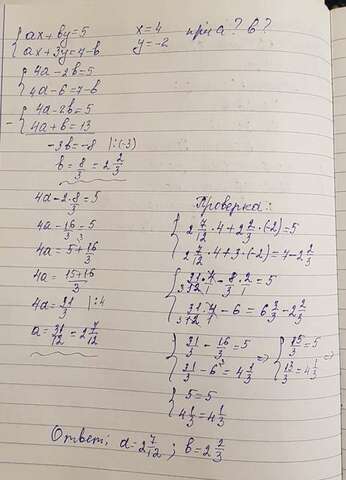 {ax + by = 5    x = 4    при a? b?
{ax + 3y = 7-b    y = -2
{4a - 2b = 5
{4a - 6 = 7-b
- {4a - 2b = 5
{4a + b = 13
-3b = -8 |:(-3)
b = 8/3 = 2 2/3
4a - 2·8/3 = 5
4a - 16/3 = 5
4a = 5 + 16/3
4a = (15+16)/3
4a = 31/3 |:4
a = 31/12 = 2 7/12
Проверка:
{2 7/12 · 4 + 2 2/3 · (-2) = 5
{2 7/12 · 4 + 3 · (-2) = 7 - 2 2/3
{31·4/12 - 8·2/3 = 5
{31·4/12 - 6 = 6 3/3 - 2 2/3
{31/3 - 16/3 = 5 => {15/3 = 5 =>
{31/3 - 6 = 4 1/3    {13/3 = 4 1/3
{5 = 5
{4 1/3 = 4 1/3
Ответ: a = 2 7/12; b = 2 2/3